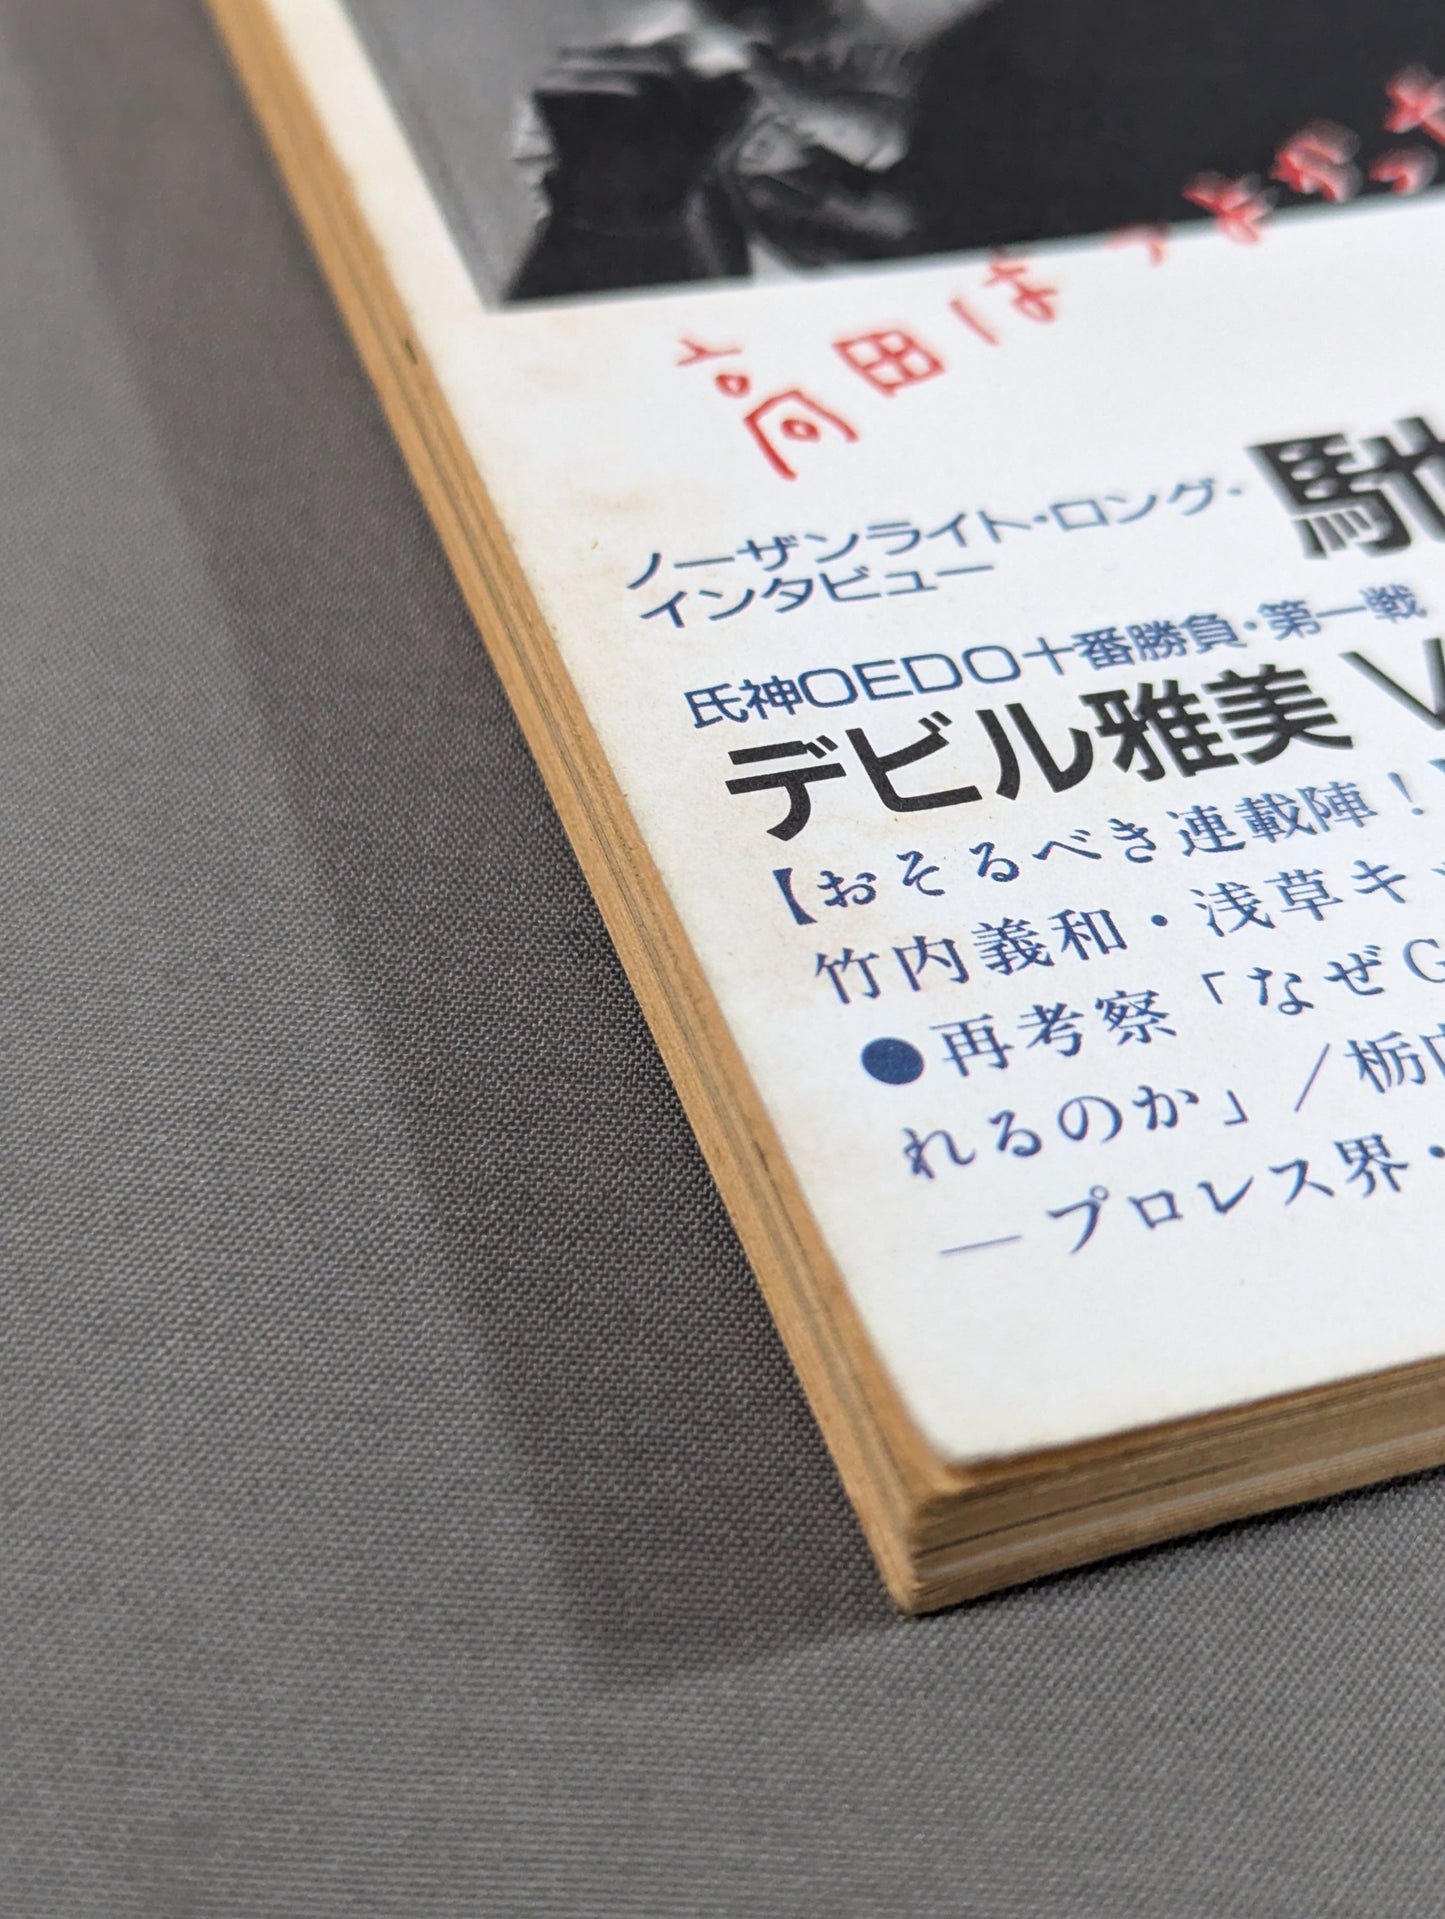 高田はつよかった
ノーザンライト・ロング・
インタビュー
馳
氏神OEDO十番勝負・第一戦
デビル雅美 V
【おそるべき連載陣！】
竹内義和・浅草キッ
●再考察「なぜG
れるのか」／栃内
―プロレス界・